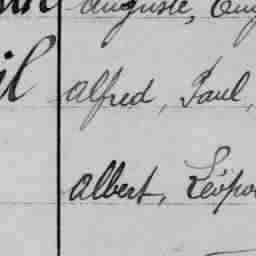 Auguste,
il alfred, Paul,
albert, Léopo